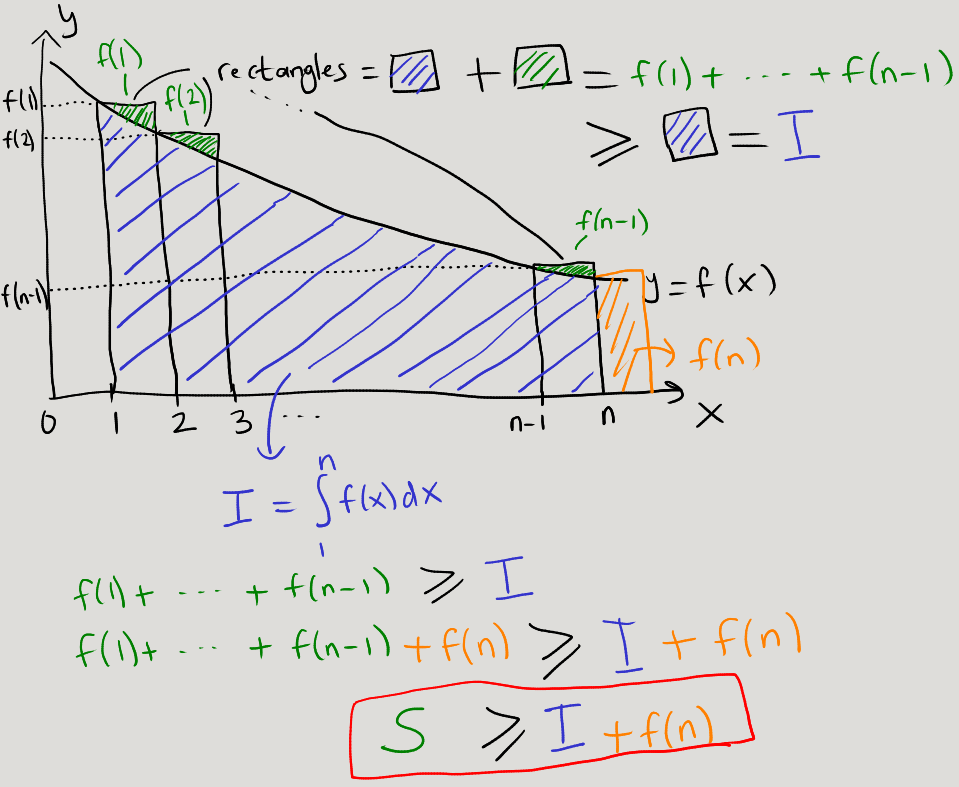 y
f(1)
rectangles = + = f(1) + ... + f(n-1)
f(1)
f(2)
f(2)
⩾ = I
f(n-1)
f(n-1)
y = f(x)
f(n)
0 1 2 3 ... n-1 n x
I = ∫₁ⁿ f(x)dx
f(1) + ... + f(n-1) ⩾ I
f(1) + ... + f(n-1) + f(n) ⩾ I + f(n)
S ⩾ I + f(n)